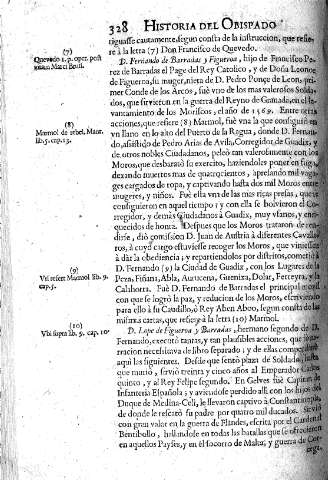 328 HISTORIA DEL OBISPADO
tiguasse cautamente, segun consta de la instruccion, que refie-
re à la letra (7) Don Francisco de Quevedo.
D. Fernando de Barradas y Figueroa, hijo de Francisco Pe-
rez de Barradas el Page del Rey Catolico, y de Doña Leonor
de Figueroa, su muger, nieta de D. Pedro Ponce de Leon, pri-
mer Conde de los Arcos, fuè vno de los mas valerosos Solda-
dos, que sirvieron en la guerra del Reyno de Granada, en el le-
vantamiento de los Moriscos, el año de 1569. Entre otras
acciones, que refiere (8) Marmol, fuè vna la que consiguiò en
vn llano en lo alto del Puerto de la Ragua, donde D. Fernan-
do, assistido de Pedro Arias de Avila, Corregidor de Guadix, y
de otros nobles Ciudadanos, peleò tan vigorosamente con los
Moros, que desbaratò su exercito, haziendoles poner en fuga,
dexando muertos mas de quatrocientos, apresando mil vaga-
ges cargados de ropa, y captivando hasta dos mil Moros entre
mugeres, y niños. Fuè esta vna de las mas ricas presas, que se
consiguieron en aquel tiempo; y con ella se bolvieron el Cor-
regidor, y demàs Ciudadanos à Guadix, muy vfanos, y enri-
quecidos de honra. Despues que los Moros trataron de ren-
dirse, diò comission D. Juan de Austria à diferentes Cavalle-
ros, à cuyo cargo estuviesse recoger los Moros, que viniessen
à dàr la obediencia; y repartiendolos por distritos, cometiò à
D. Fernando (9) la Ciudad de Guadix, con los Lugares de la
Peza, Fiñana, Abla, Aurucena, Gueniza, Dolar, Ferreyra, y la
Calahorra. Fuè D. Fernando de Barradas el principal medio
con que se logrò la paz, y reducion de los Moros, escriviendo
para ello à su Caudillo, ò Rey Aben Aboo, segun consta de las
mismas cartas, que refiere à la letra (10) Marmol.
D. Lope de Figueroa y Barradas, hermano segundo de D.
Fernando, executò tantas, y tan plausibles acciones, que su nar-
racion necessitava de libro separado; y de ellas compendiarè
aqui las siguientes. Desde que sentò plaza de Soldado, hasta
que murio, sirviò treinta y cinco años al Emperador Carlos
quinto, y al Rey Felipe segundo. En Gelves fuè Capitan de
Infanteria Española; y aviendose perdido alli con los hijos del
Duque de Medina-Celi, le llevaron captivo à Constantinopla,
de donde le rescatò su padre por quatro mil ducados. Sirviò
con gran valor en la guerra de Flandes, escrita por el Cardenal
Bentibollo, hallandose en todas las batallas que se ofrecieron
en aquellos Payses, y en el socorro de Malta; y guerra de Cor-
cega:
(7)
Quevedo 1. p. oper. post
vitam Marci Bruti.
(8)
Marmol de rebel. Maur.
lib. 5. cap. 13.
(9)
Vti refert Marmol lib. 9.
cap. 5.
(10)
Vbi supra lib. 9. cap. 10.